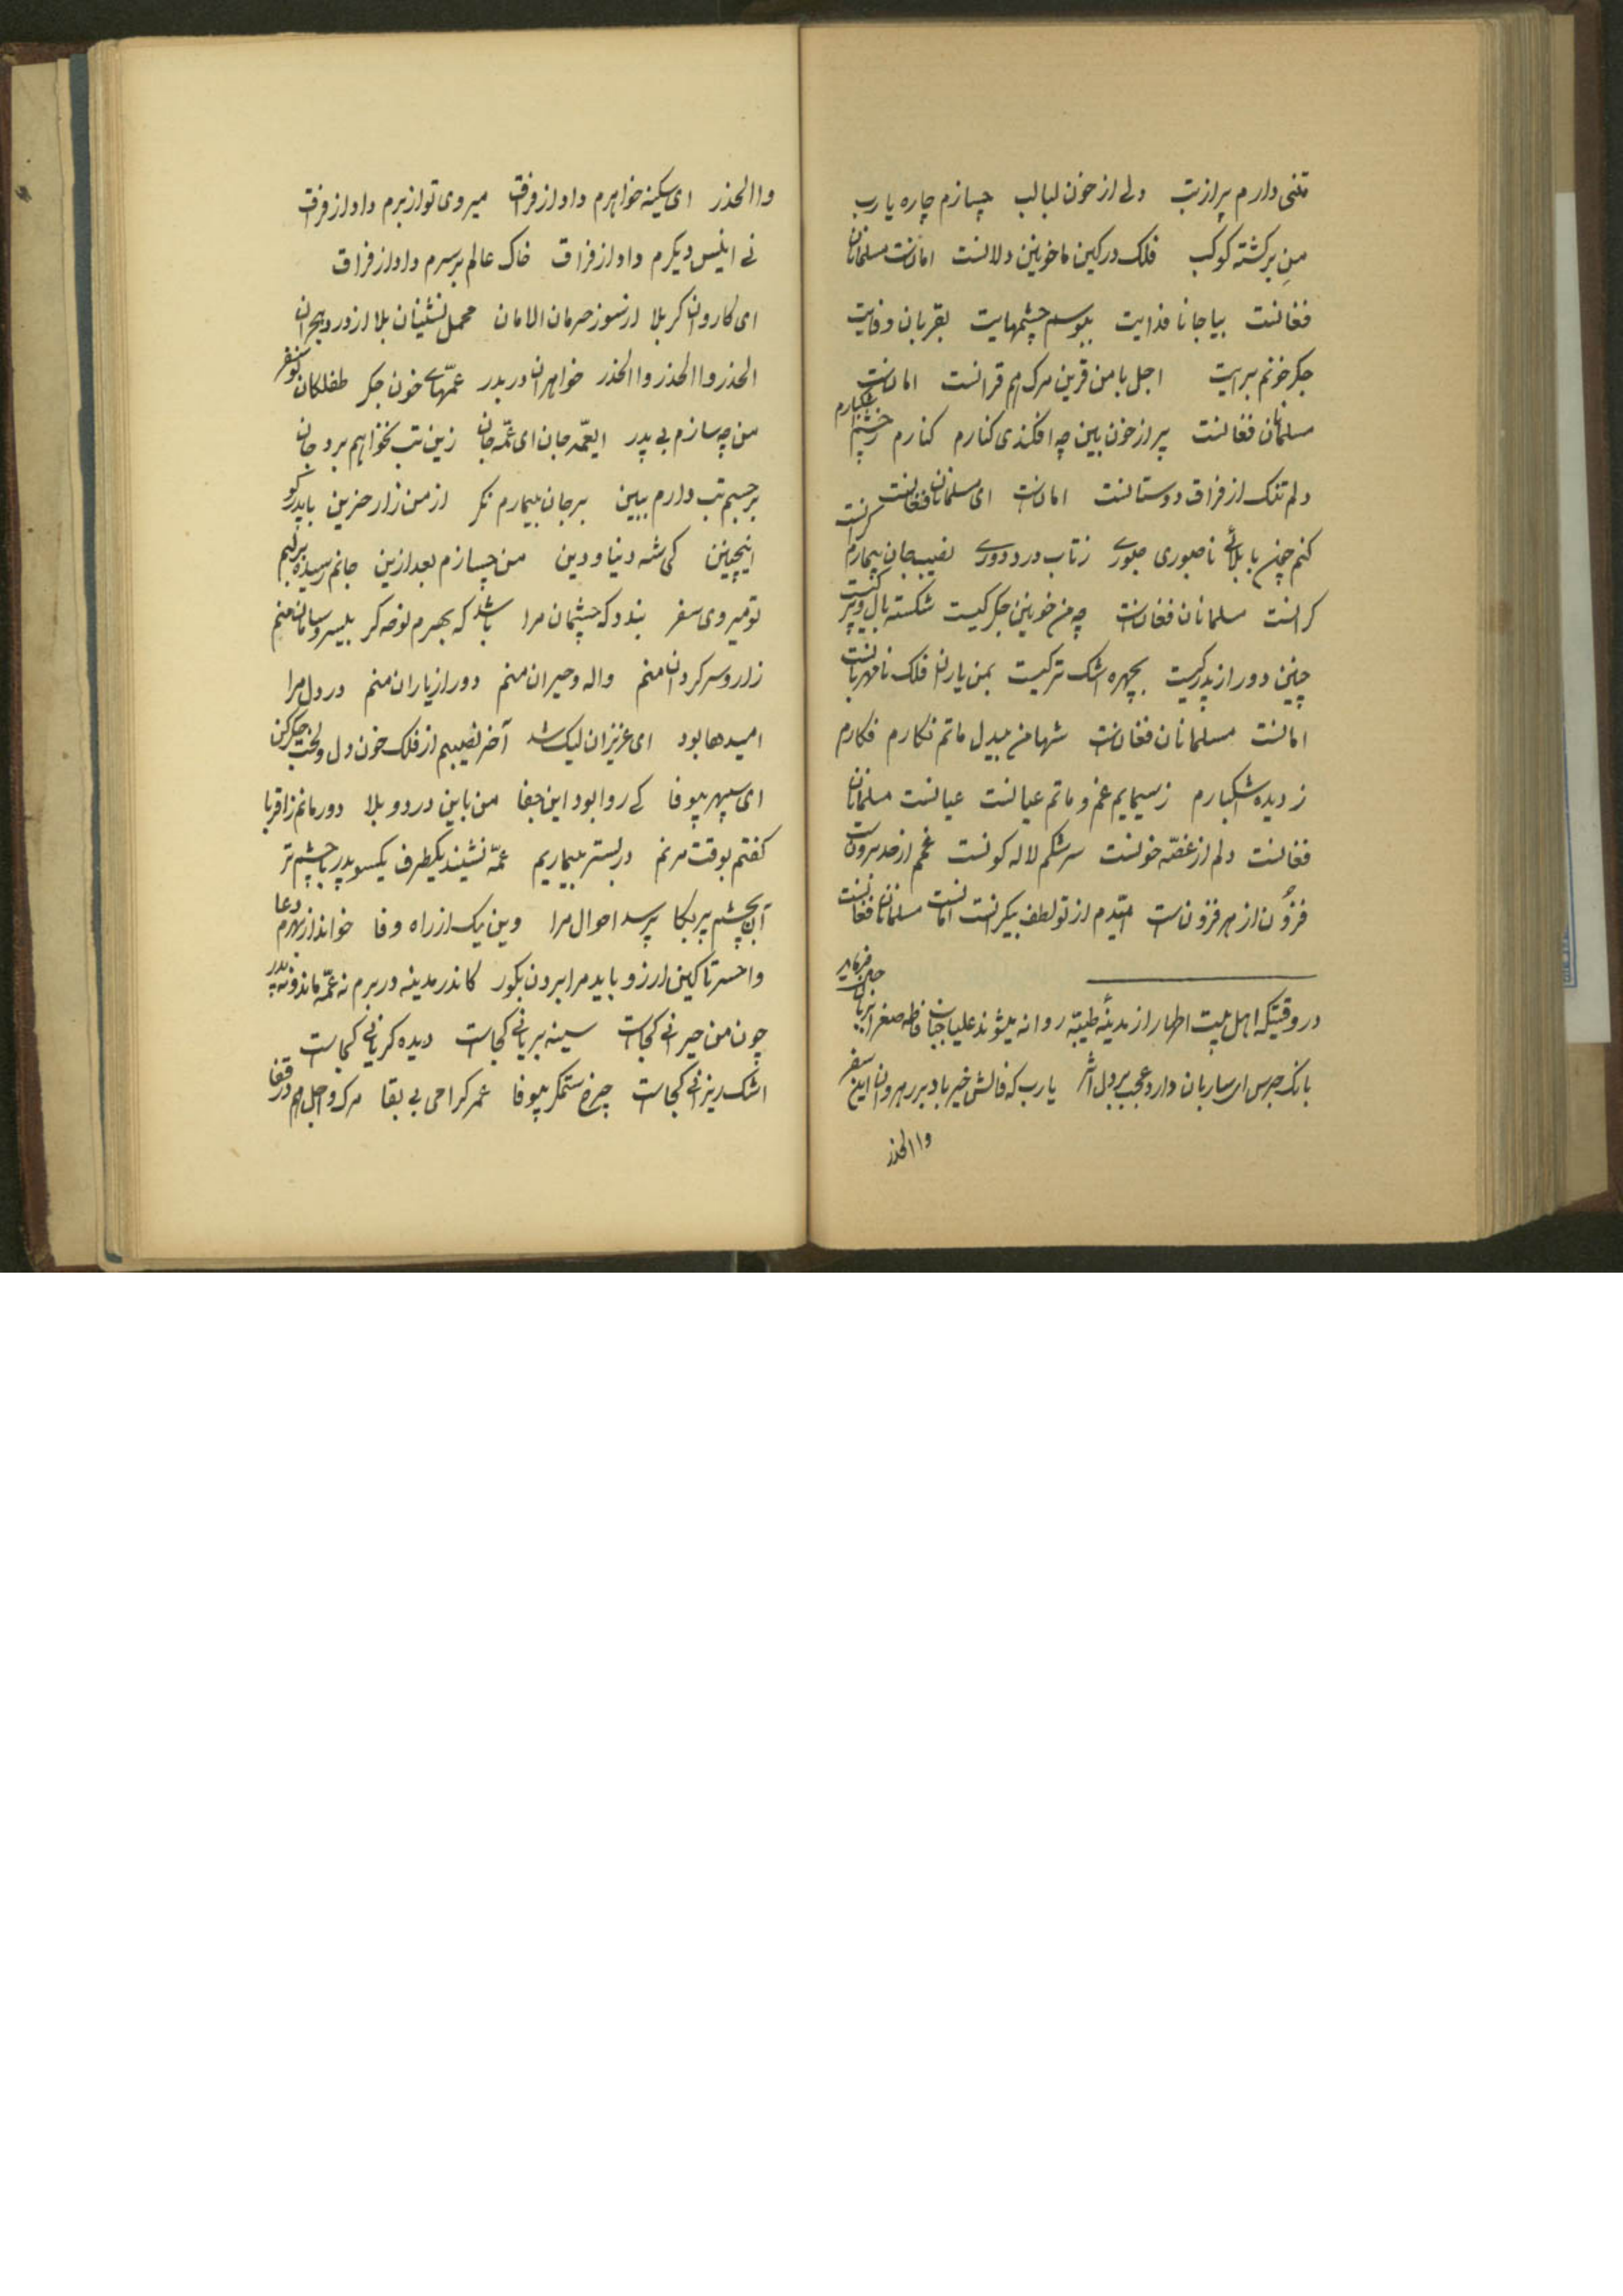 تنی دارم پر از تب ولی از خون لبالب چسازم چاره یا رب
من برکشته کوکب فلک در کین ما خونین دلانست امانست مسلمانان
فغانست بیا جانا فدایت ببوسم چشمهایت بقربان وفایت
جکر خونم برایت اجل با من قرین مرک هم قرانست امانست
مسلمانان فغانست پر از خون بین چه افکندی کنارم کنارم ز چشم اشکبارم
دلم تنک از فراق دوستانست امانست ای مسلمانان فغانست
کنم چون با بلای ناصبوری صبوری ز تاب درد دوری نصیب جان بیمارم
کرانست مسلمانان فغانست چه من خونین جکر کیست شکسته بال و پر کیست
چنین دور از پدر کیست بچهره اشک تر کیست بمن یاران فلک نامهربانست
امانست مسلمانان فغانست شها من بیدل ماتم نکارم فکارم
ز دیده اشکبارم ز سیمایم غم و ماتم عیانست عیانست مسلمانان
فغانست دلم از غصّه خونست سرشکم لاله کونست غمم از حد برونست
فزون از هر فزونست امّیدم از تو لطف بیکرانست امانست مسلمانان فغانست
در وقتیکه اهل بیت اطهار از مدینهٔ طیّبه روانه میشوند علیا جناب فاطمه صغرا بزبان حال میفرماید
بانک جرس ای ساربان دارد عجب بر دل اثر یا رب که فالش خیر باد بر رهروان این سفر
واالحذر
واالحذر ای سکینه خواهرم داد از فراق میروی تو از برم داد از فراق
نی انیس دیکرم داد از فراق خاک عالم بر سرم داد از فراق
ای کاروان کربلا از سوز حرمان الامان محمل نشینان بلا از درد هجران
الحذر واالحذر واالحذر خواهران در بدر عمّهای خون جکر طفلکان نوسفر
من چه سازم بی پدر ایعمّه جان ای عمّه جان زین تب نخواهم برد جان
بر جسم تب دارم ببین بر جان بیمارم نکر از من زار حزین با پدر کو
اینچنین کی شه دنیا و دین من چسازم بعد ازین جانم رسیده بر لبم
تو میروی سفر بندد که چشمان مرا باشد که بهرم نوحه کر بیسر و سامان منم
زار و سرکردان منم واله و حیران منم دور از یاران منم در دل مرا
امیدها بود ای عزیزان لیک شد آخر نصیبم از فلک خون دل و لخت جکر
ای سپهر بیوفا کی روا بود این جفا من باین درد و بلا دور مانم ز اقربا
کفتم بوقت مردنم در بستر بیماریم عمّه نشیند یکطرف یکسو پدر با چشم تر
آن بچشم پر بکا پرسد احوال مرا وین یک از راه وفا خواند از بهرم دعا
وا حسرتا کین ارزو باید مرا بردن بکور کاندر مدینه در برم نه عمّه ماند و نه پدر
چون من حیرانی کجاست سینه بریانی کجاست دیده کریانی کجاست
اشک ریزانی کجاست چرخ ستمکر بیوفا عمر کرامی بی بقا مرک و اجل هم در قفا